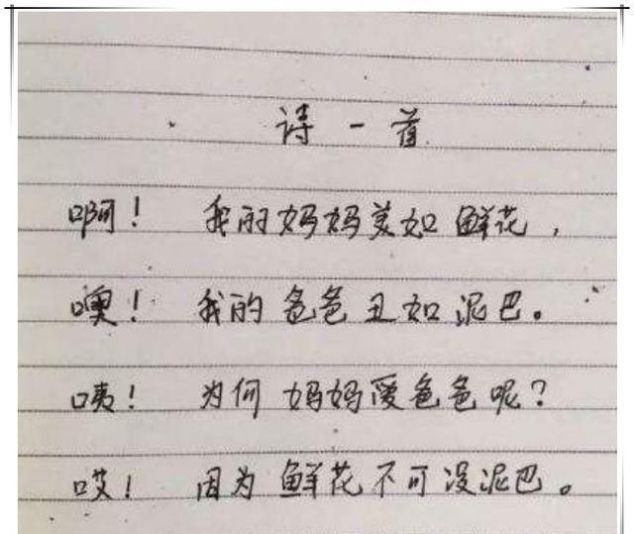 诗一首
啊！ 我的妈妈美如鲜花，
噢！ 我的爸爸丑如泥巴。
咦！ 为何妈妈爱爸爸呢？
哎！ 因为鲜花不可没泥巴。